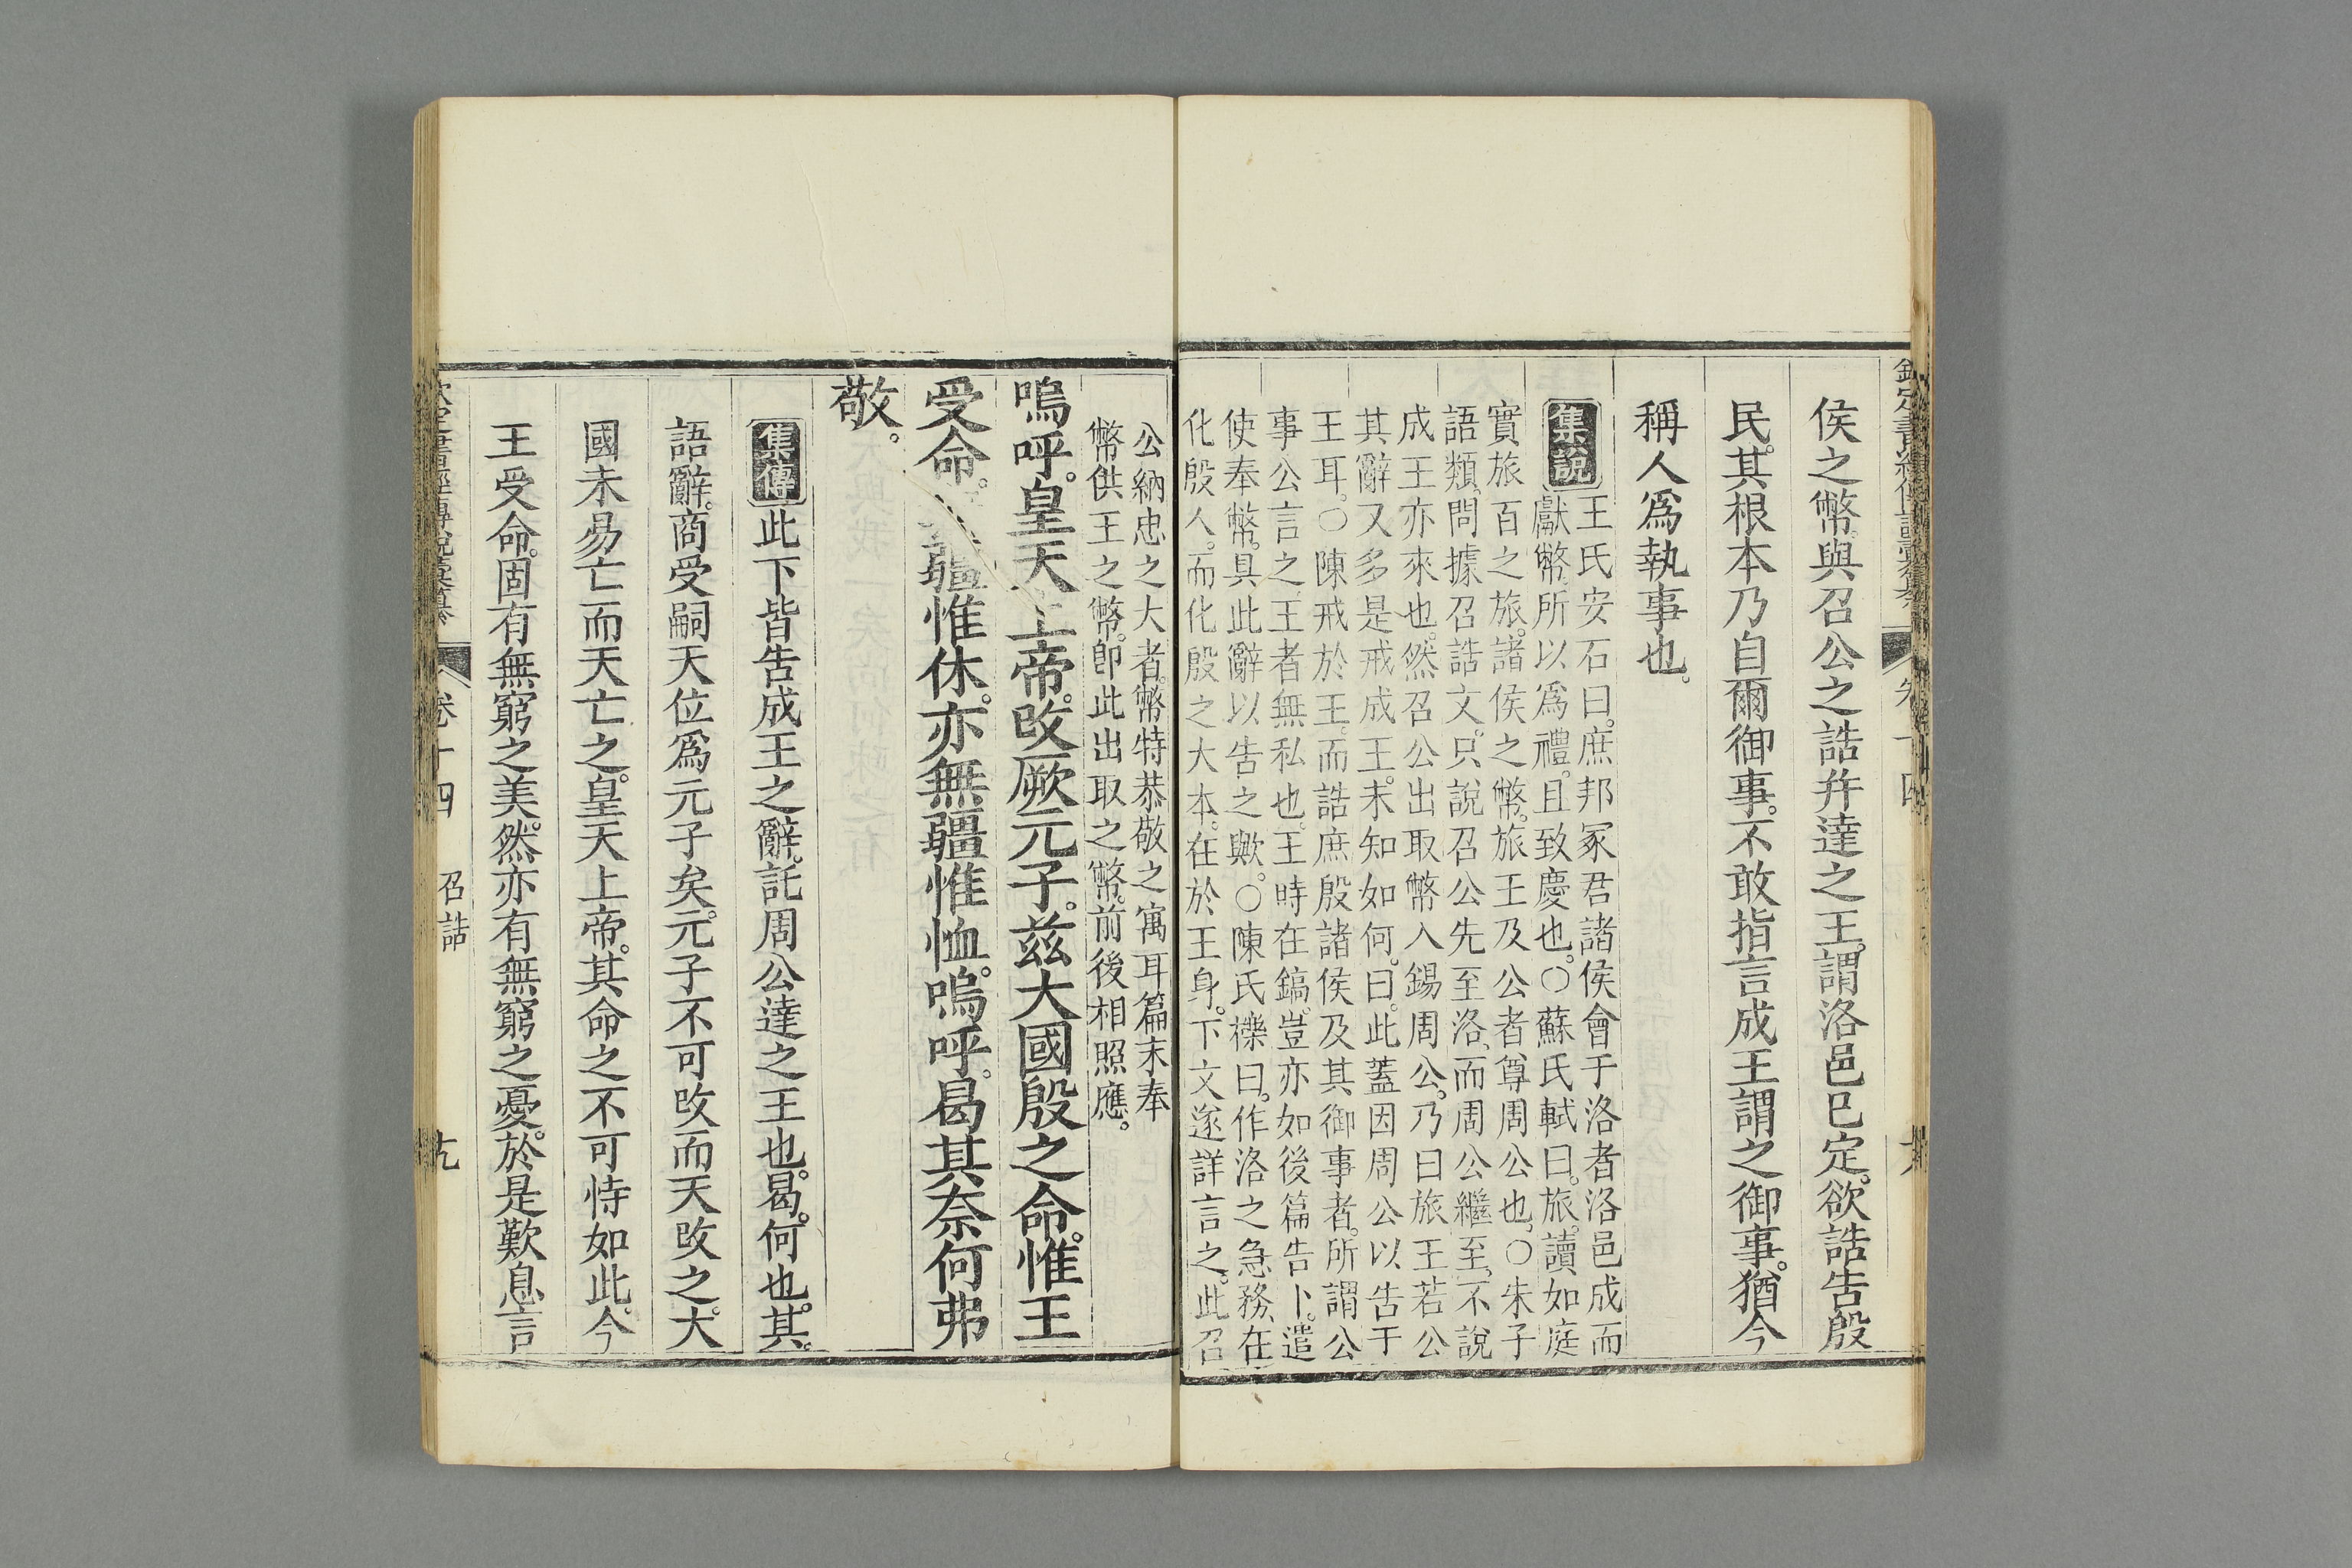 侯之幣與召公之誥并達之王謂洛邑已定欲誥告殷
民其根本乃自爾御事不敢指言成王謂之御事猶今
稱人爲執事也
集說
王氏安石曰庶邦冢君諸侯會于洛者洛邑成而
獻幣所以爲禮且致慶也○蘇氏軾曰旅讀如庭
實旅百之旅諸侯之幣旅王及公者尊周公也○朱子
語類問據召誥文只說召公先至洛而周公繼至不說
成王亦來也然召公出取幣入錫周公乃曰旅王若公
其辭又多是戒成王未知如何曰此蓋因周公以告于
王耳○陳戒於王而誥庶殷諸侯及其御事者所謂公
事公言之王者無私也王時在鎬豈亦如後篇告卜遣
使奉幣具此辭以告之歟○陳氏櫟曰作洛之急務在
化殷人而化殷之大本在於王身下文遂詳言之此召
公納忠之大者幣特恭敬之寓耳篇末奉
幣供王之幣卽此出取之幣前後相照應
嗚呼皇天上帝改厥元子茲大國殷之命惟王
受命疆惟休亦無疆惟恤嗚呼曷其奈何弗
敬
集傳
此下皆告成王之辭託周公達之王也曷何也其
語辭商受嗣天位爲元子矣元子不可改而天改之大
國未易亡而天亡之皇天上帝其命之不可恃如此今
王受命固有無窮之美然亦有無窮之憂於是歎息言
卷十四 召誥